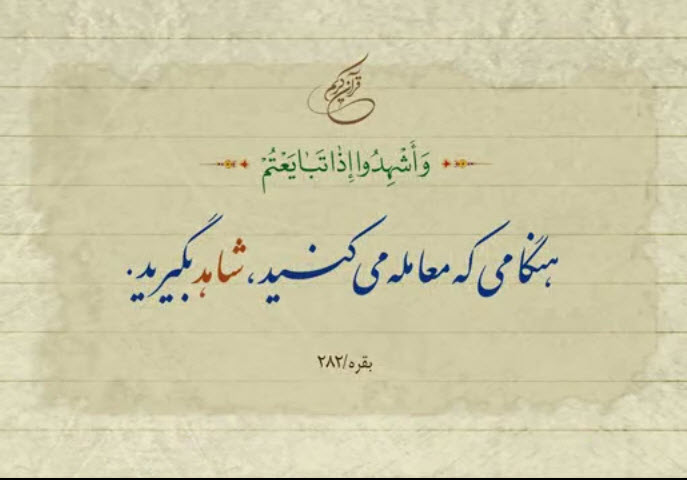 قرآن کریم
وَأَشْهِدُوا إِذَا تَبَايَعْتُمْ
هنگامی که معامله می کنید، شاهد بگیرید.
بقره/۲۸۲